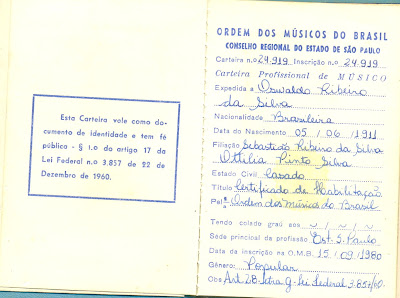 Esta Carteira vale como do-
cumento de identidade e tem fé
público - § 1.o do artigo 17 da
Lei Federal n.o 3.857 de 22 de
Dezembro de 1960.
ORDEM DOS MÚSICOS DO BRASIL
CONSELHO REGIONAL DO ESTADO DE SÃO PAULO
Carteira n.o 24.919 Inscrição n.o 24.919
Carteira Profissional de MÚSICO
Expedida a Oswaldo Ribeiro
da Silva
Nacionalidade Brasileira
Data do Nascimento 05 / 06 / 1911
Filiação Sebastião Ribeiro da Silva
Ottilia Pinto Silva
Estado Civil Casado
Título Certificado de Habilitação
Pela Ordem dos Músicos do Brasil
Tendo colado grau aos ~ / ~ / ~
Séde principal da profissão Est. S. Paulo
Data da inscrição na O.M.B. 15 / 09 / 1980
Gênero: Popular
Obs Art. 28 Letra G - Lei Federal 3.857/60